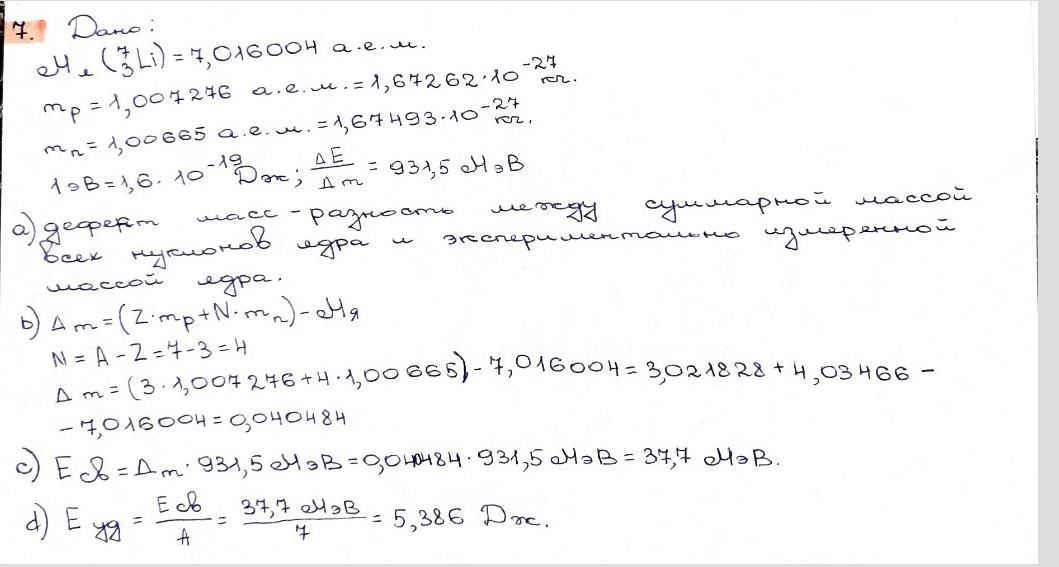 7. Дано:
Mя (⁷₃Li) = 7,016004 а.е.м.
mp = 1,007276 а.е.м. = 1,67262·10⁻²⁷ кг.
mn = 1,00665 а.е.м. = 1,67493·10⁻²⁷ кг.
1эВ = 1,6·10⁻¹⁹ Дж; ΔE/Δm = 931,5 МэВ
a) дефект масс - разность между суммарной массой
всех нуклонов ядра и экспериментально измеренной
массой ядра.
b) Δm = (Z·mp + N·mn) - Mя
N = A - Z = 7 - 3 = 4
Δm = (3·1,007276 + 4·1,00665) - 7,016004 = 3,021828 + 4,03466 -
- 7,016004 = 0,040484
c) Eсв = Δm·931,5 МэВ = 0,040484·931,5 МэВ = 37,7 МэВ.
d) Eуд = Eсв/A = 37,7 МэВ/7 = 5,386 Дж.